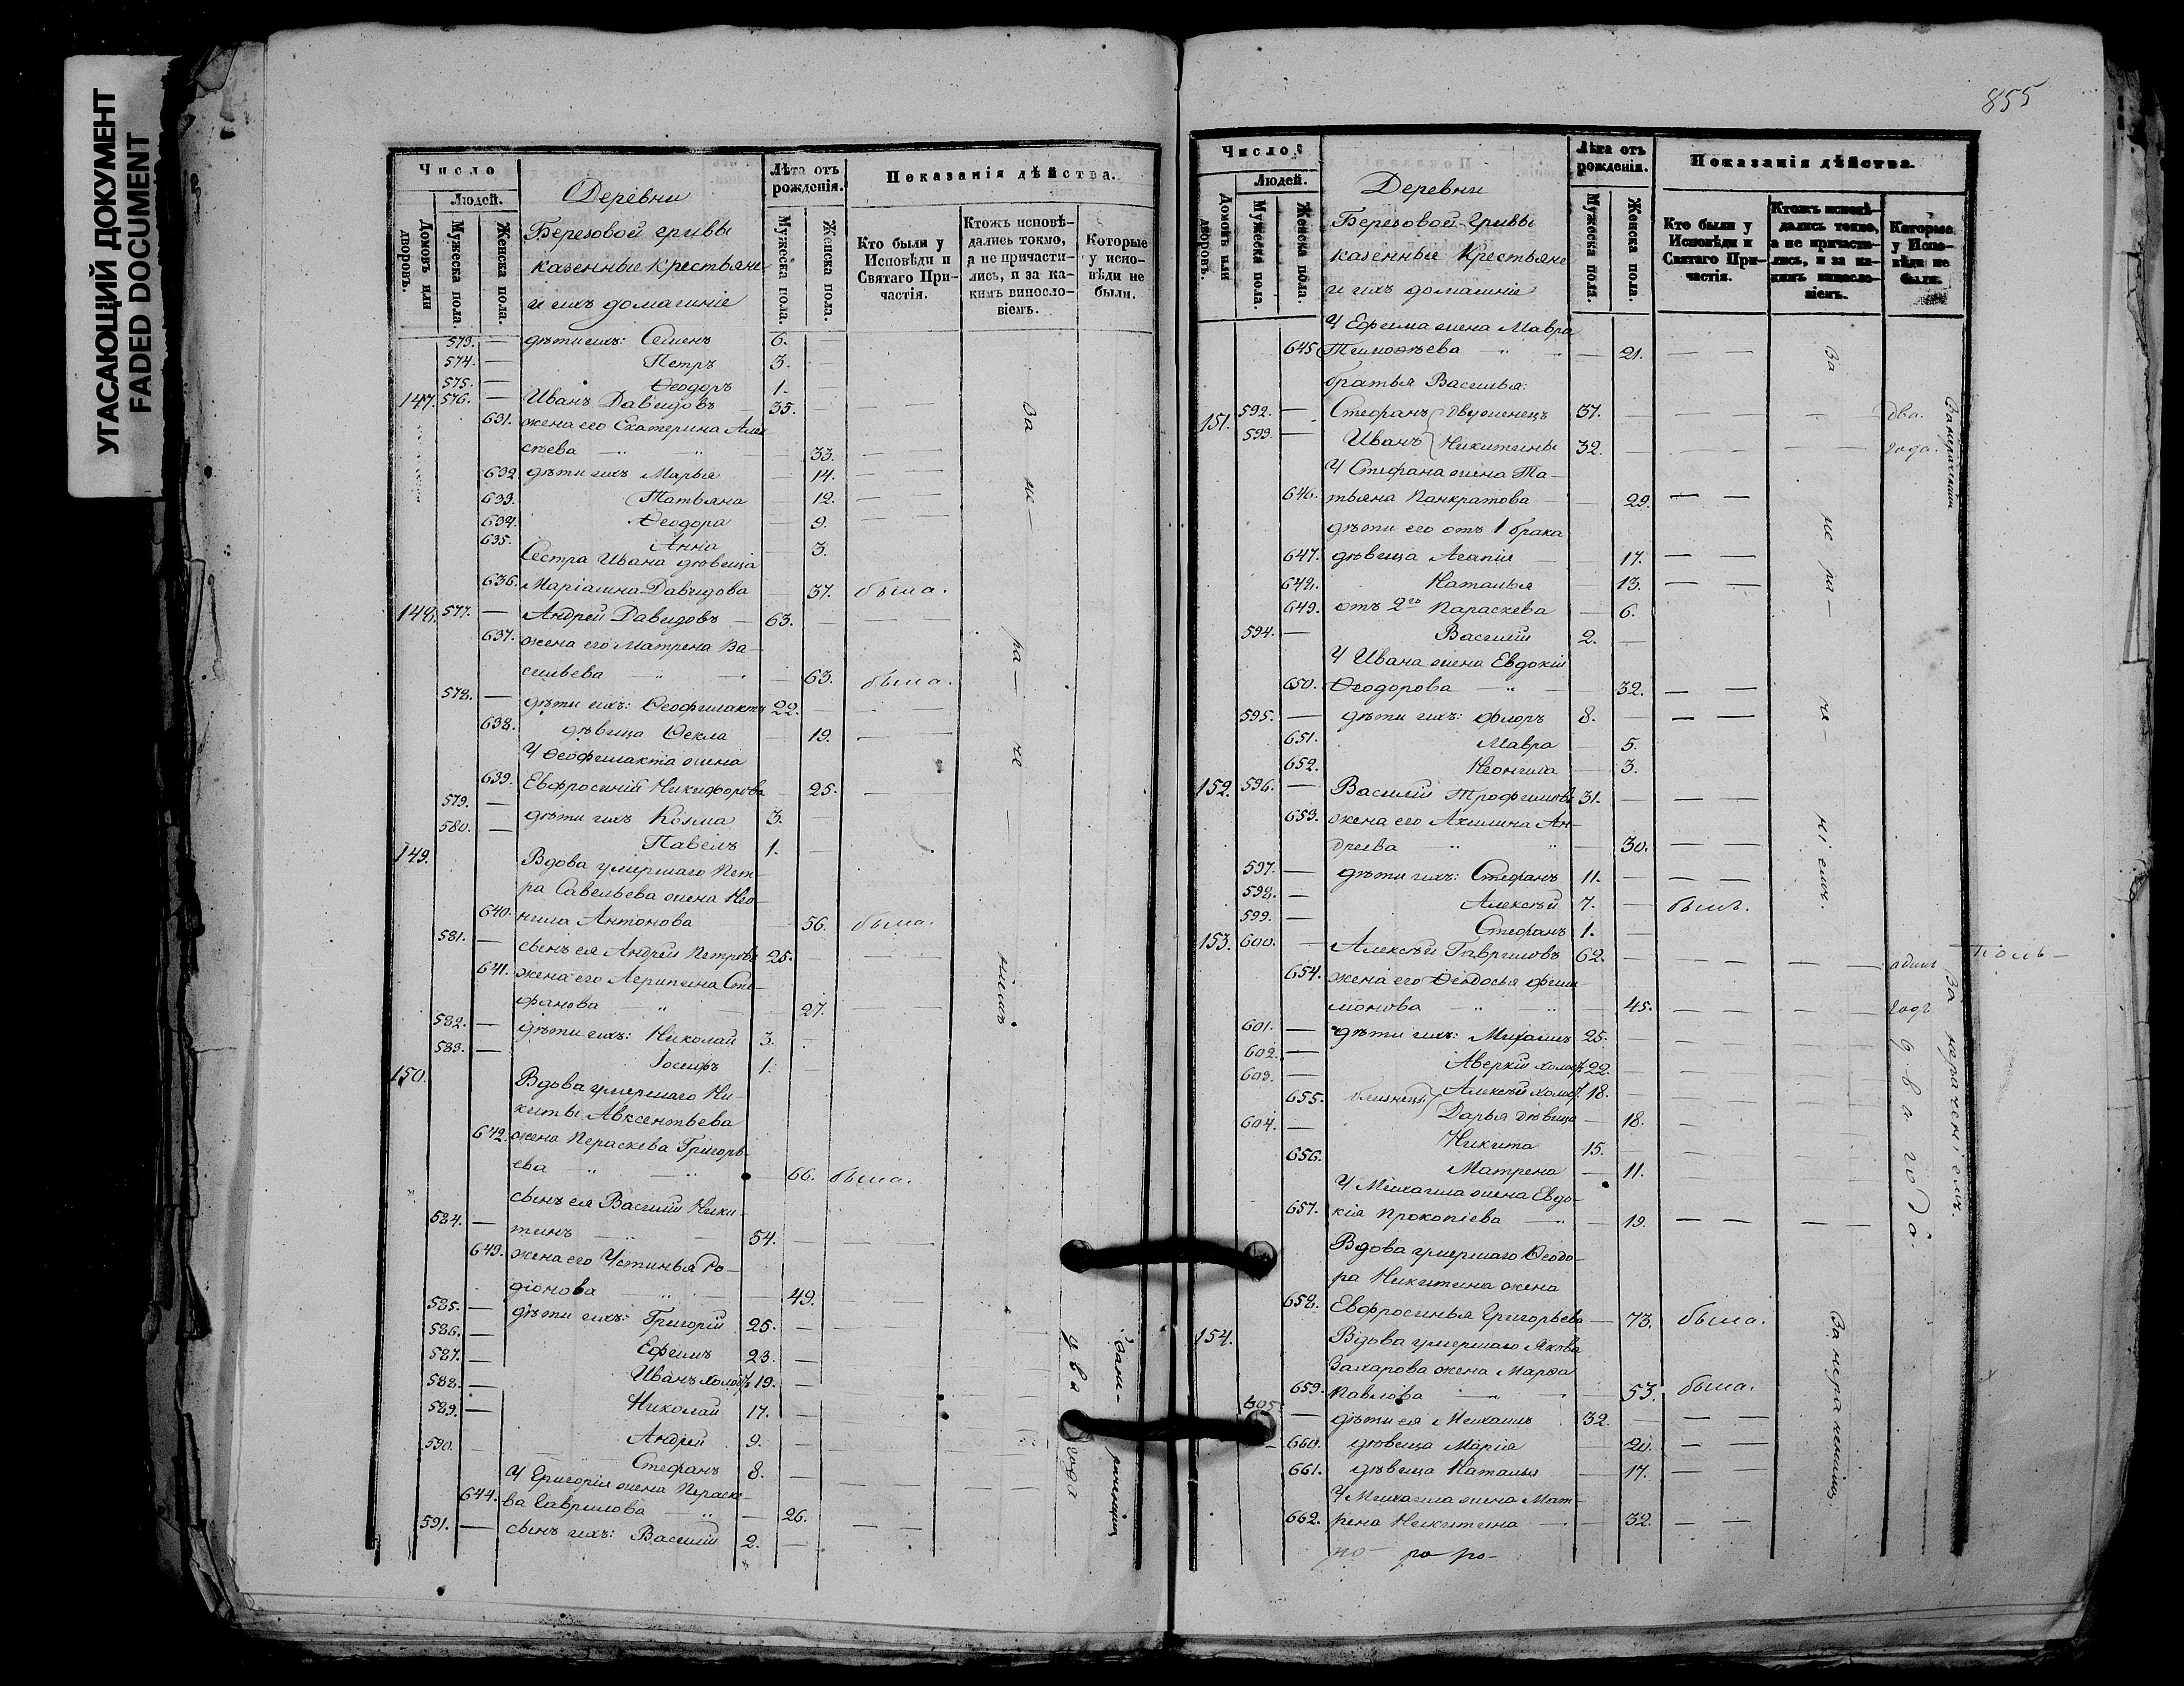 УГАСАЮЩИЙ ДОКУМЕНТ
FADED DOCUMENT
Число
Людей.
Домовъ или дворовъ.
Мужеска пола.
Женска пола.
Деревни
Березовой гривы
казенные крестьяне
и ихъ домашніе
Лѣта отъ рожденія.
Мужеска пола.
Женска пола.
Показанія дѣйства.
Кто были у Исповѣди и Святаго Причастія.
Ктожъ исповѣдались токмо, а не причастились, и за какимъ винословіемъ.
Которые у исповѣди не были.
573. — дѣти ихъ: Семенъ 6. —
574. — Петръ 3. —
575. — Ѳеодоръ 1. —
147. 576. — Иванъ Давидовъ 35. — — —
631. жена его Екатерина Алек
сѣева — „ — 33. — —
632 дѣти ихъ Марья — 14. — —
633. Татьяна 12. — —
634. Ѳеодора — 9. — —
635. Анна — 3.
Сестра Ивана дѣвица
636. Маріамна Давидова — 37. была.
148. 577. — Андрей Давидовъ — 63. — — —
637. жена его Матрена Ва-
сильева — „ — 63. была.
578. — дѣти ихъ: Ѳеофилактъ 22. — — —
638. дѣвица Ѳекла — 19. — —
У Ѳеофилакта жена
639. Евфросинія Никифорова — 25. — —
579. — дѣти ихъ Козма 3. —
580. — Павелъ 1. —
149. Вдова умершаго Пет-
ра Савельева жена Нео-
640. нила Антонова 56. была.
581. — сынъ ея Андрей Петровъ 25. — —
641. жена его Агрипина Сте-
фанова „ — 27. — —
582. — дѣти ихъ: Николай 3. —
583. — Іосифъ 1. —
150. Вдова умершаго Ни-
киты Авксентьева
642. жена Параскева Григорь-
ева — „ — „ 66. была.
сынъ ея Василій Ники-
584. — тинъ — „ — 54. — — —
643. жена его Устинья Ро-
діонова — „ — 49. — —
585. — дѣти ихъ: Григорій 25. — — —
586. — Ефимъ 23. —
587. — Иванъ холос. 19. —
588. — Николай 17. —
589. — Андрей 9. —
590. — Стефанъ 8. —
У Григорія жена Параске-
644. ва Гаврилова — „ — 26. — —
591. — сынъ ихъ: Василій 2. —
За не- ра- че- ніемъ
два года
855
Число
Людей.
Домовъ или дворовъ.
Мужеска пола.
Женска пола.
Деревни
Березовой-Гривы
казенные Крестьяне
и ихъ домашніе
Лѣта отъ рожденія.
Мужеска пола.
Женска пола.
Показанія дѣйства.
Кто были у Исповѣди и Святаго Причастія.
Ктожъ исповѣдались токмо, а не причастились, и за какимъ винословіемъ.
Которые у Исповѣди не были.
У Ефима жена Мавра
645. Тимоѳѣева „ — 21. — —
братья Василья:
151. 592. — Стефанъ двоженецъ 37. — — — — два.
593. — Иванъ Никитины 32. — — — — года.
У Стефана жена Та-
646. тьяна Панкратова — 29. — —
дѣти его отъ 1 брака
647. дѣвица Агапія — 17. — —
648. Наталья — 13. — —
649. отъ 2го Параскева — 6.
594. — Василій 2. —
У Ивана жена Евдокія
650. Ѳеодорова — „ — 32. — —
595. — дѣти ихъ: Флоръ 8. — — —
651. Мавра — 5.
652. Неонила — 3.
152. 596. — Василій Трофимовъ 31. — — —
653. жена его Акилина Ан-
дреева „ „ — 30. — —
597. — дѣти ихъ: Стефанъ 11. — — —
598. — Алексѣй 7. — былъ.
599. — Стефанъ 1. —
153. 600. — Алексѣй Гавриловъ 62. — — — — — одинъ
654. жена его Ѳеодосья Фили-
монова — „ — „ — 45. — — — — годъ
601. — дѣти ихъ: Михаилъ 25. —
602. — Аверкій холос. 22. —
603. — Алексѣй холос. 18. —
655. близнецы Дарья дѣвица — 18. —
604. — Никита 15. —
656. Матрена — 11. —
У Михаила жена Евдо-
657. кія Прокопіева — „ — 19. — — — —
Вдова умершаго Ѳеодо-
ра Никитина жена
658. Евфросинья Григорьева — 73. была.
154. Вдова умершаго Якова
Захарова жена Марѳа
659. Павлова — — 53. была.
605. — дѣти ея Михаилъ 32. — — —
660. дѣвица Марія — 20. — —
661. дѣвица Наталья — 17. — —
У Михаила жена Мат-
662. рена Никитина — — 32. — —
За не ра- че- ніемъ.
За нерачен
За нераченіемъ.
два года.
За нераченіемъ